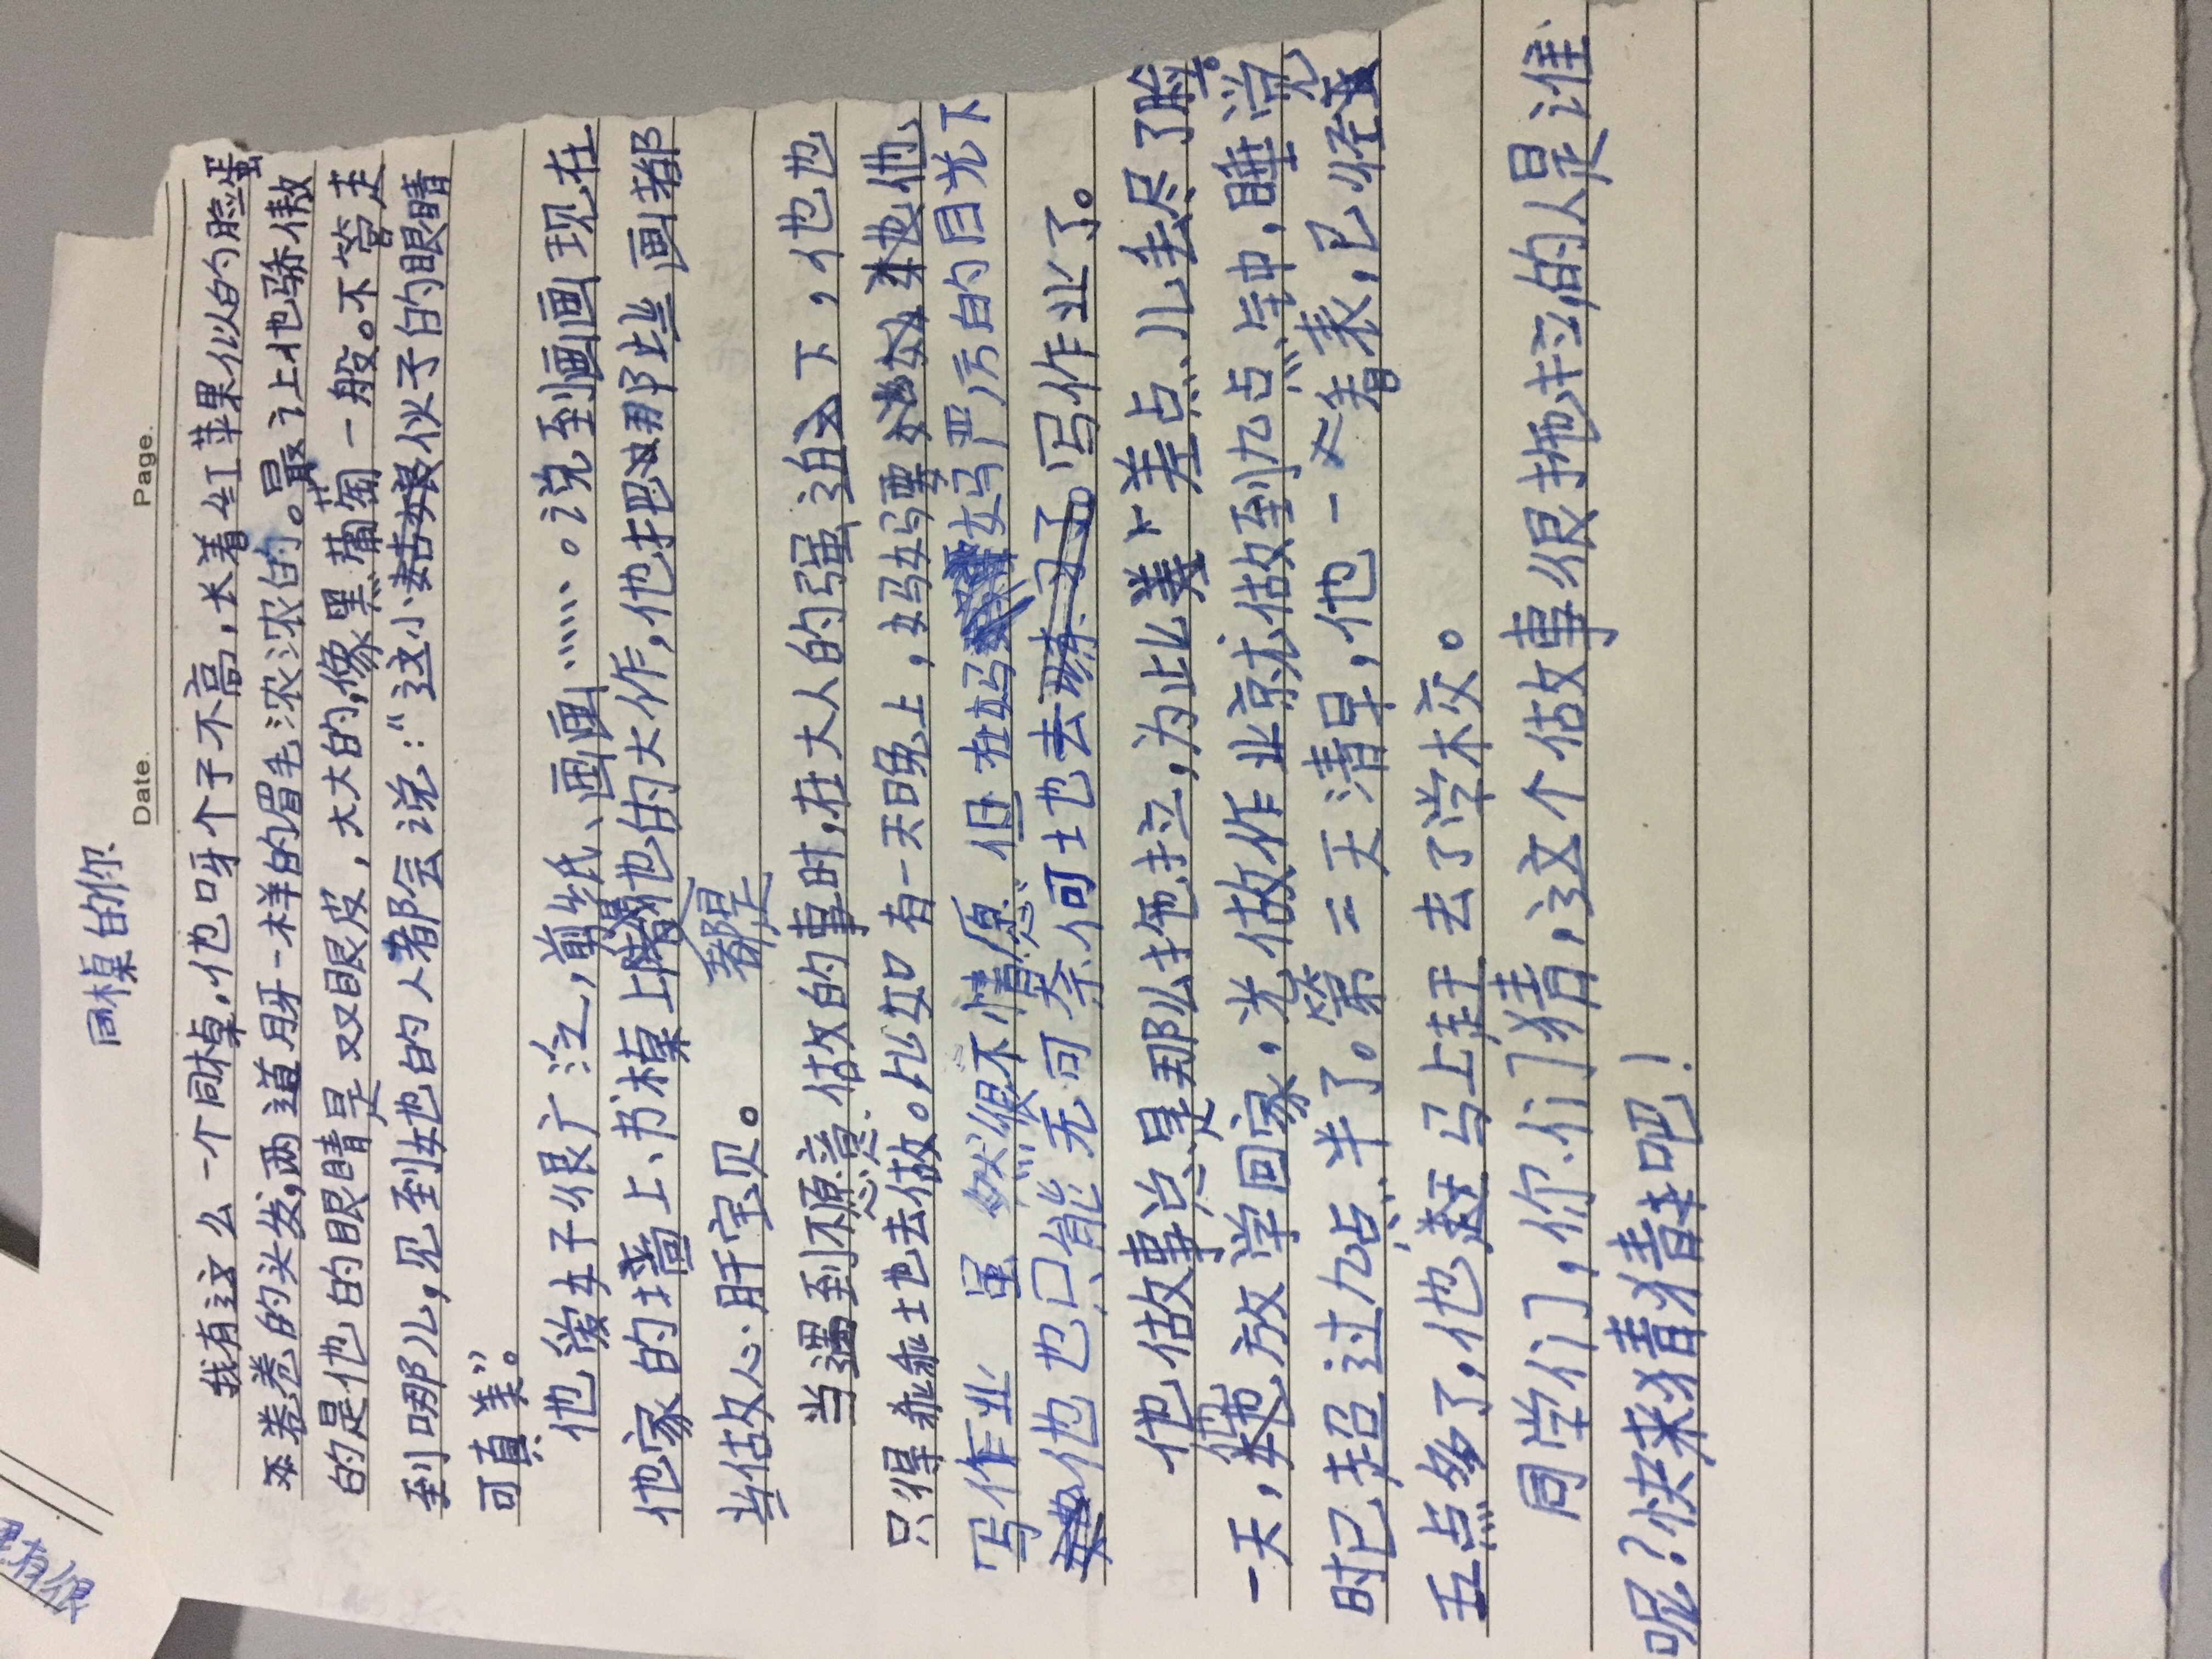 同桌的你
Date.
Page.
我有这么一个同桌,他呀个子不高,长着红苹果似的脸蛋
卷卷的头发,两道月牙一样的眉毛浓浓的。最让他骄傲
的是他的眼睛是双眼皮,大大的,像黑葡萄一般。不管走
到哪儿,见到她的人都会说:“这小姑娘伙子的眼睛
可真美”。
他爱好很广泛,剪纸、画画……。说到画画现在
他家的墙上、书桌上都是他的大作,他把那些画都
当做心肝宝贝。
当遇到不愿意做的事时,在大人的强迫下,他也
只得乖乖地去做。比如有一天晚上,妈妈要他
写作业 虽然很不情愿 但在妈妈严厉的目光下
他也只能无可奈何地去写作业了。
他做事总是那么拖拉,为此差点儿丢尽了脸。
一天,他放学回家,光做作业就做到九点钟,睡觉
时已超过九点半了。第二天清早,他一看表,已经
五点多了,他马上赶去了学校。
同学们,你们猜,这个做事很拖拉的人是谁
呢?快来猜猜吧!
有很